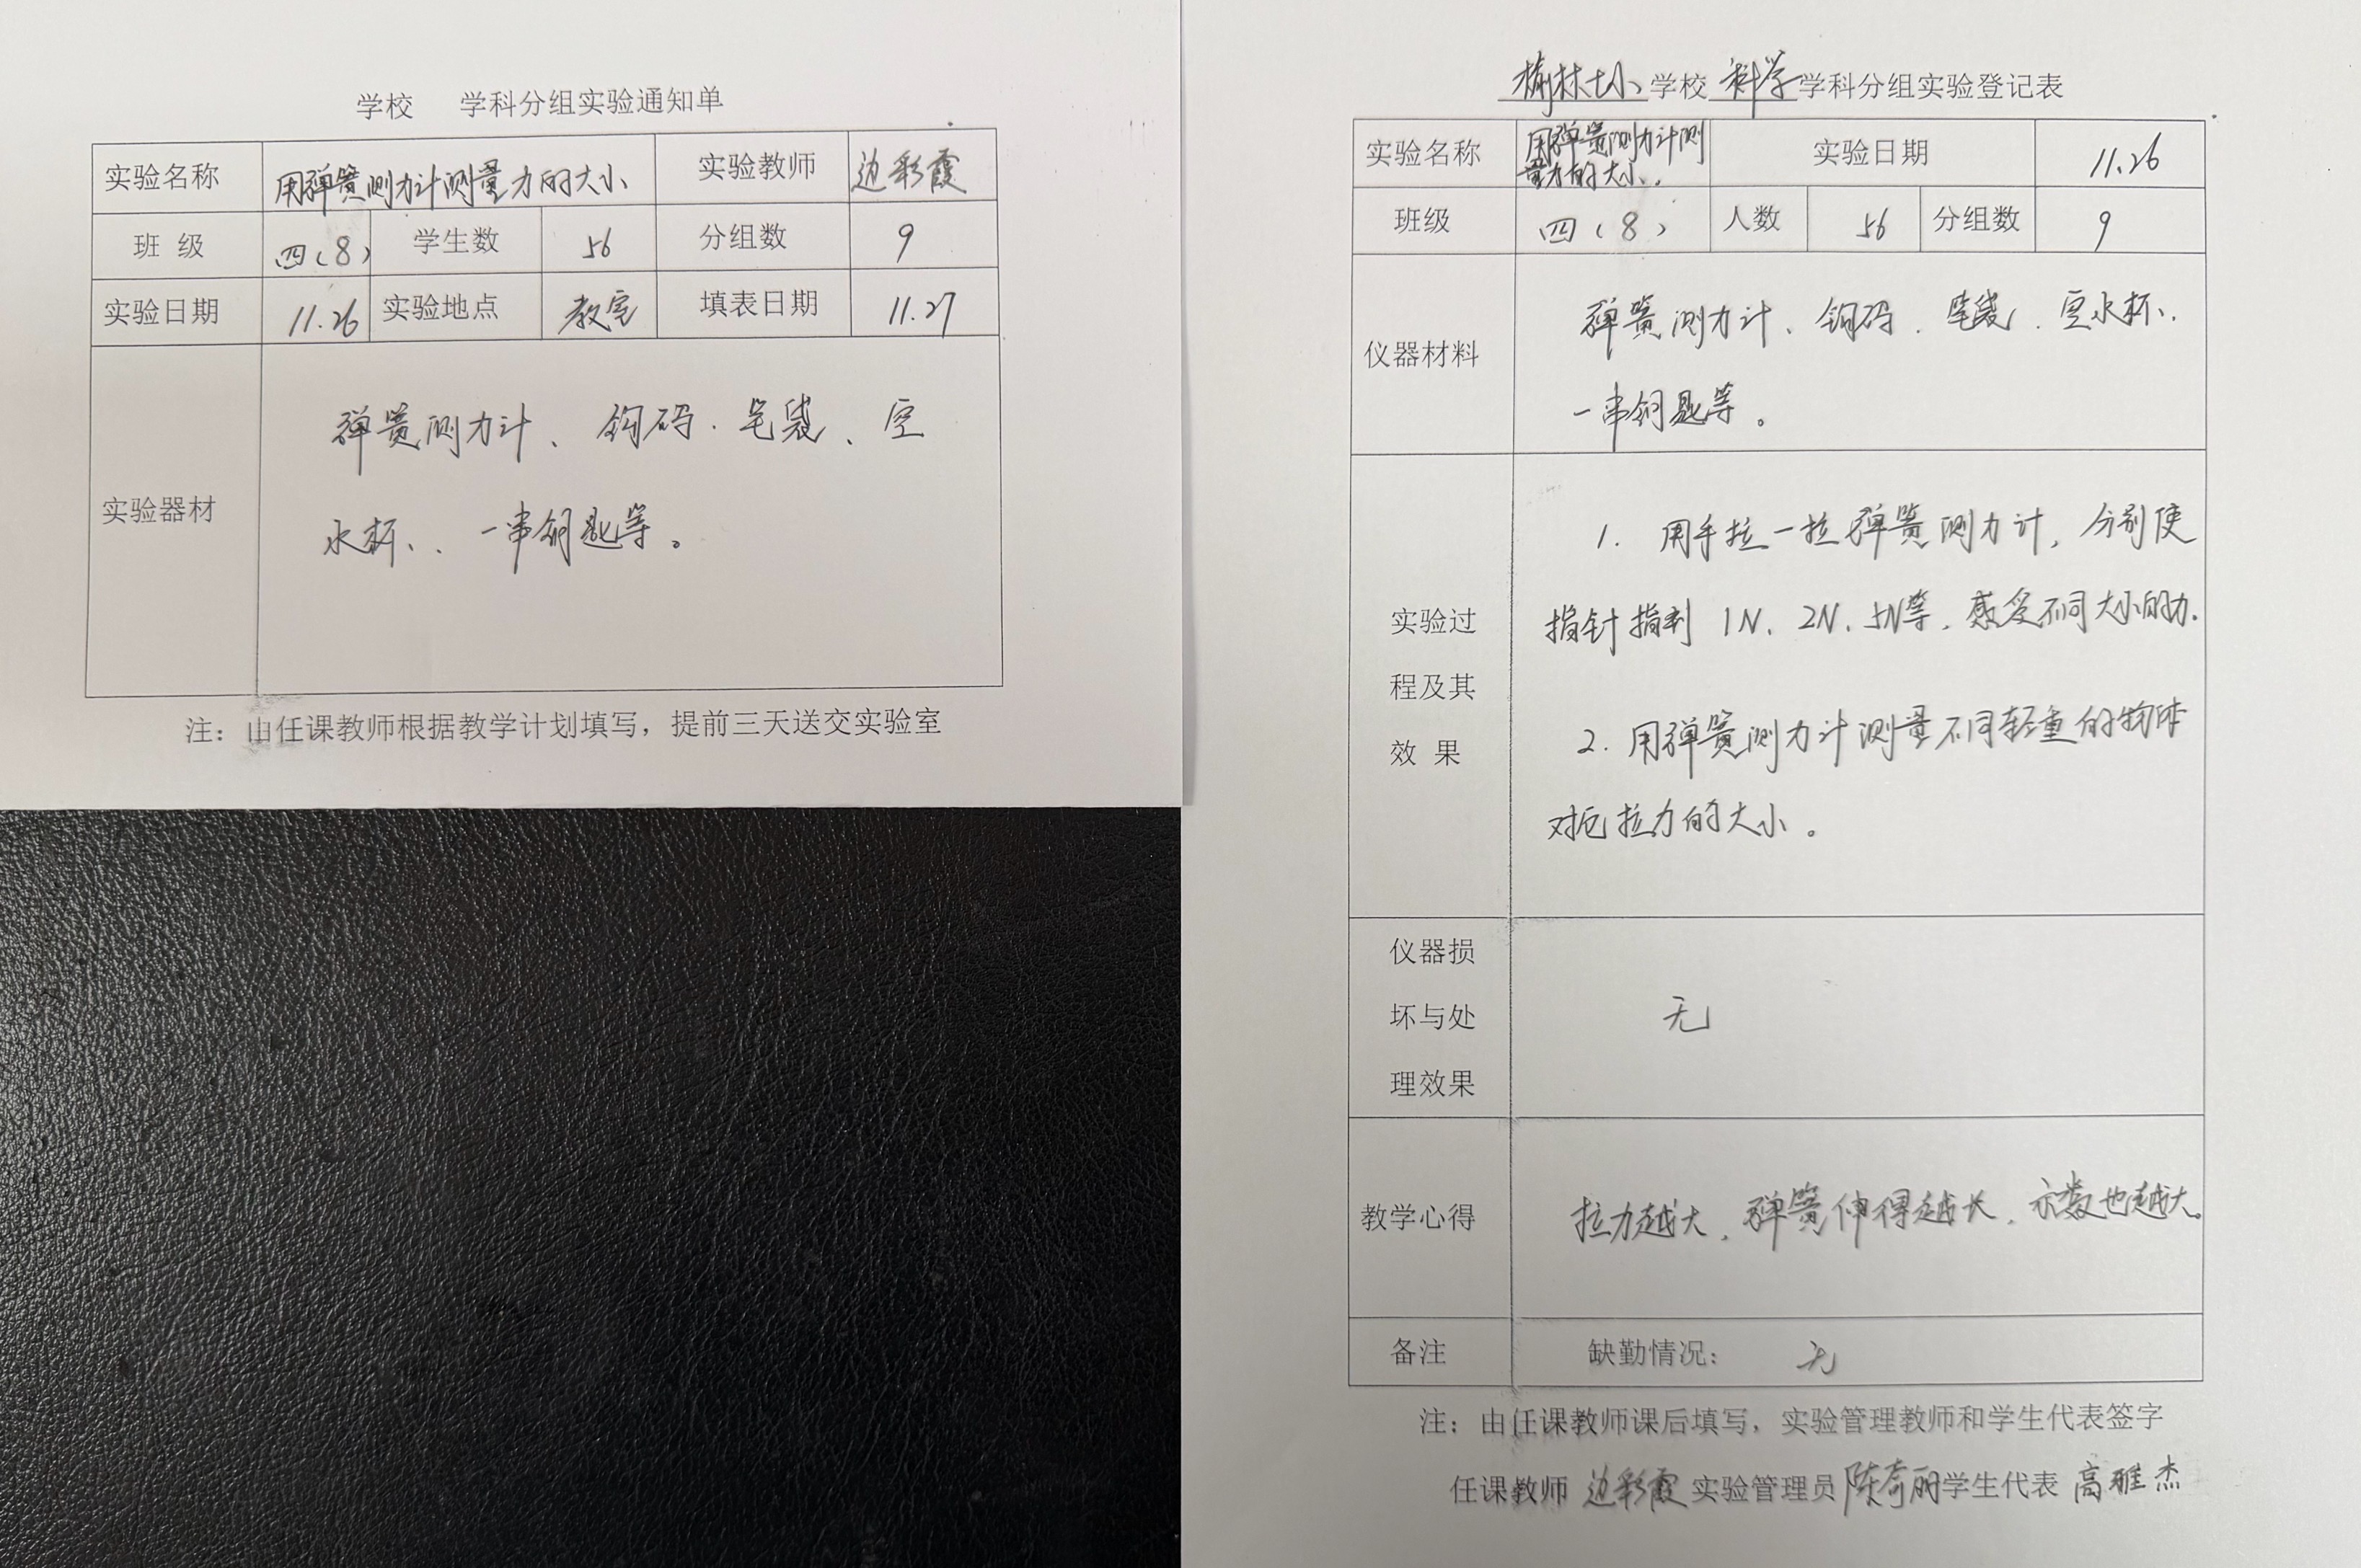 学校 学科分组实验通知单
实验名称 用弹簧测力计测量力的大小 实验教师 边彩霞
班 级 四(8) 学生数 56 分组数 9
实验日期 11.26 实验地点 教室 填表日期 11.27
实验器材 弹簧测力计、钩码、笔袋、空
水杯、一串钥匙等。
注：由任课教师根据教学计划填写，提前三天送交实验室
榆林七小学校 科学学科分组实验登记表
实验名称 用弹簧测力计测
量力的大小. 实验日期 11.26
班级 四(8) 人数 56 分组数 9
仪器材料 弹簧测力计、钩码、笔袋、空水杯、
一串钥匙等。
实验过
程及其
效 果
1. 用手拉一拉弹簧测力计, 分别使
指针指到 1N、2N、5N等, 感受不同大小的力.
2. 用弹簧测力计测量不同轻重的物体
对它拉力的大小。
仪器损
坏与处
理效果
无
教学心得 拉力越大, 弹簧伸得越长, 示数也越大。
备注 缺勤情况： 无
注：由任课教师课后填写，实验管理教师和学生代表签字
任课教师 边彩霞 实验管理员 陈奇丽 学生代表 高雅杰